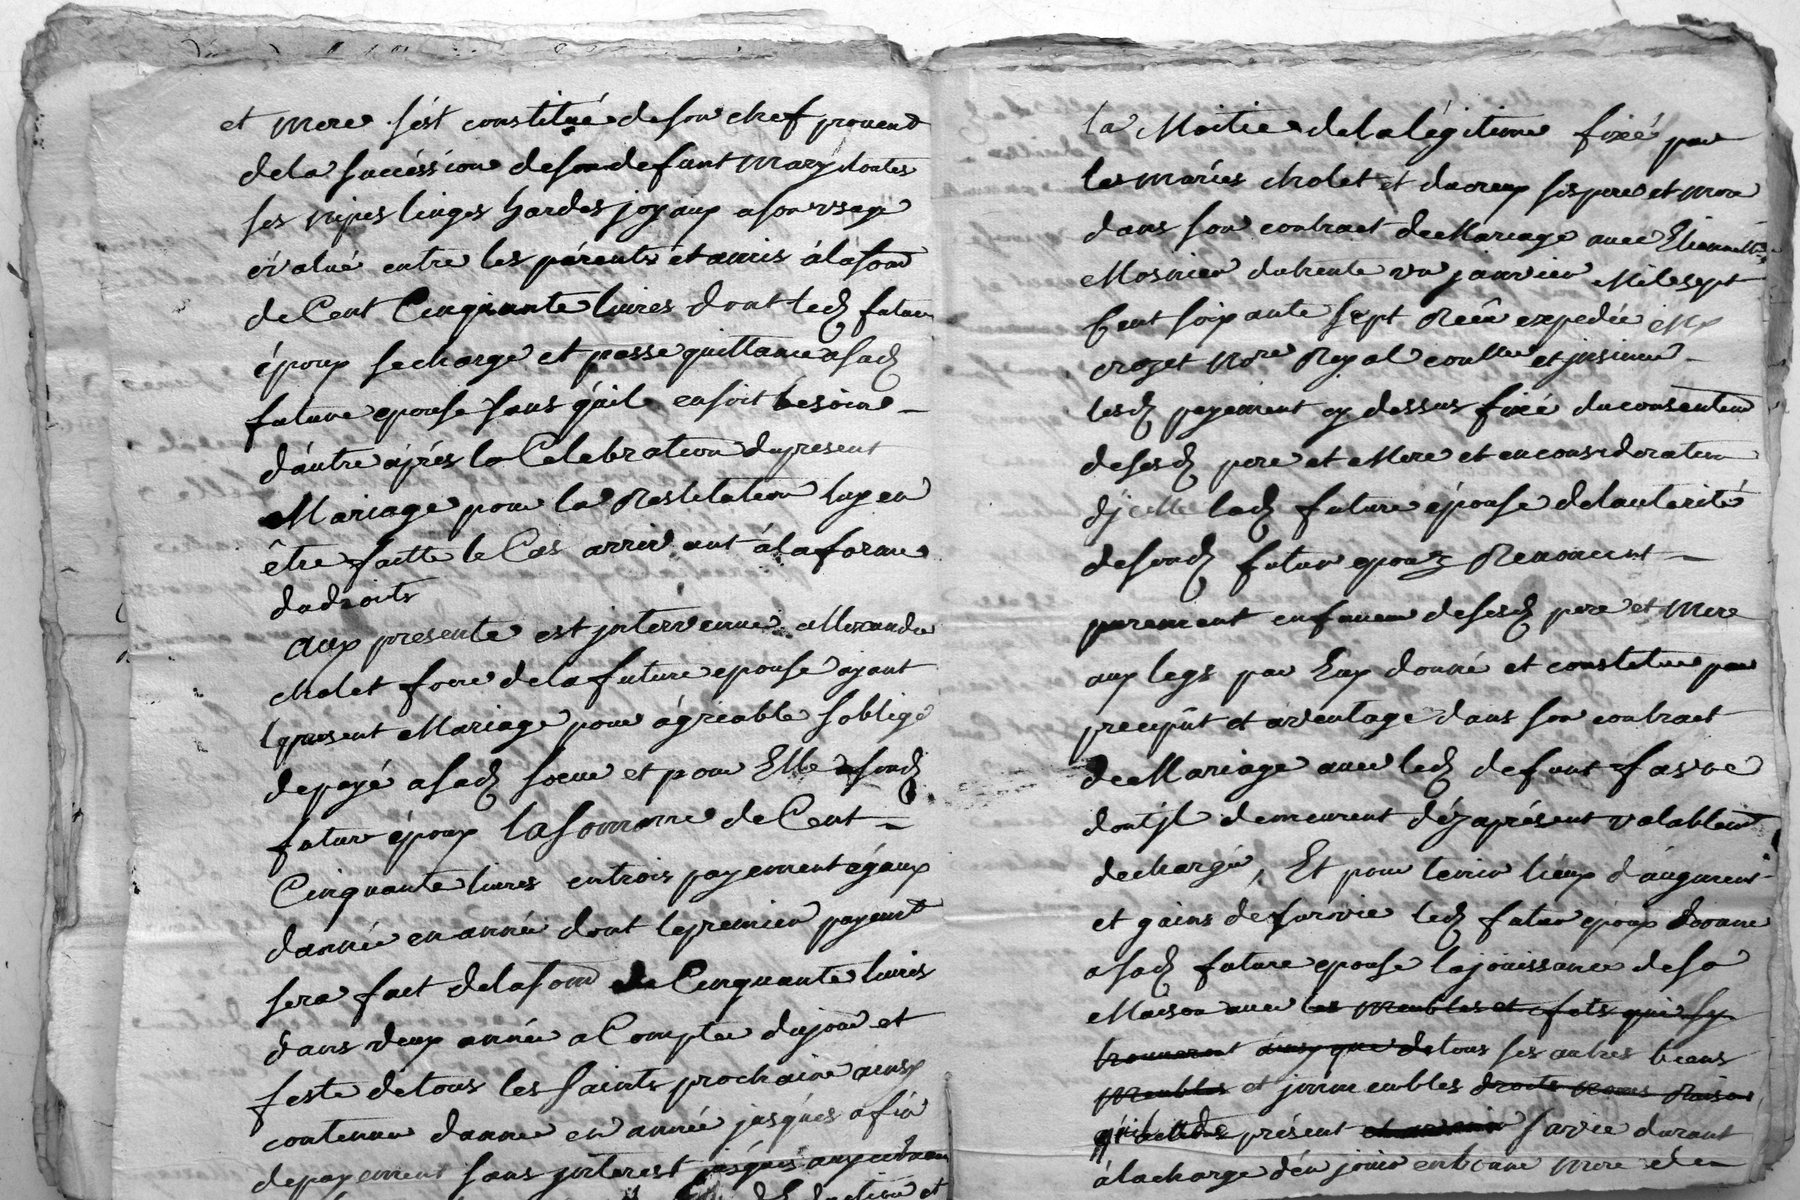 et mere s'ést constitué deson chef provent
dela succéssion deson defunt mary toutes
ses nipes linges hardes joyaux a son usage
évalué entre les párents et amis á lasom
de Cent Cinquante livres dont led futeur
époux secharge et passe quittance a sad
future epouse sans qu'il ensoit besoin
dáutre aprés la Celebration dupresent
Mariage pour la Restitution luy en
être faitte le Cas arrivant á la forme
dudroits
aux presente est jntervenue allexandre
cholet frere dela future epouse ayant
lepresent Mariage pour ágréable soblige
depayé a sad soeur et pour Elle asond
futur époux la somme de Cent
Cinquante livres entrois payement égaux
dannée en année dont lepremier payemt
sera fact delasom de Cinquante livres
dans deux année a Compter dujour et
feste détous les saints prochaine ainsy
contenue dannee en année jusqúes a fin
depayement sans jnterest jusqúes
la Moitié delalégitime fixé par
les mariés cholet et ses pere et mere
dans son contract de Mariage avec
Mosnier dutrente un janvier Mil sept
Cent soixante sept Recû expedié
crozet Nore Royal et jnsinué
lesd payement cy dessus fixé duconsentem
desesd pere et Mere et enconsideration
djcelle lad future épouse delautorité
desond futur epoux Renoncent
purement enfaveur desesd pere et mere
aux legs par Eux donné et constitue par
precipût et aventage dans son contract
de Mariage avec led defunt favre
dontjl demeurent déz aprésent valablemt
dechargés, Et pour tenir liéux d'augment
et gains desurvie led futur époux donne
a sad future epouse la jouissance de sa
Maison avec les meubles et efets qui sy
trouveront ainsy que detous ses autres biens
meubles et jmmeubles droits noms Raison
présent et avenir sa vie durant
á lacharge d'én jouir enbonne mere de